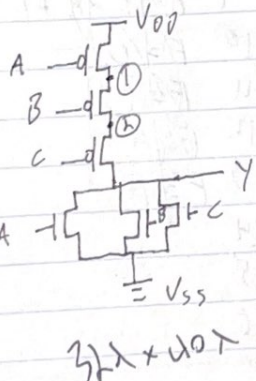 V_DD
A
①
B
②
C
Y
A B C
V_SS
32λ × 40λ